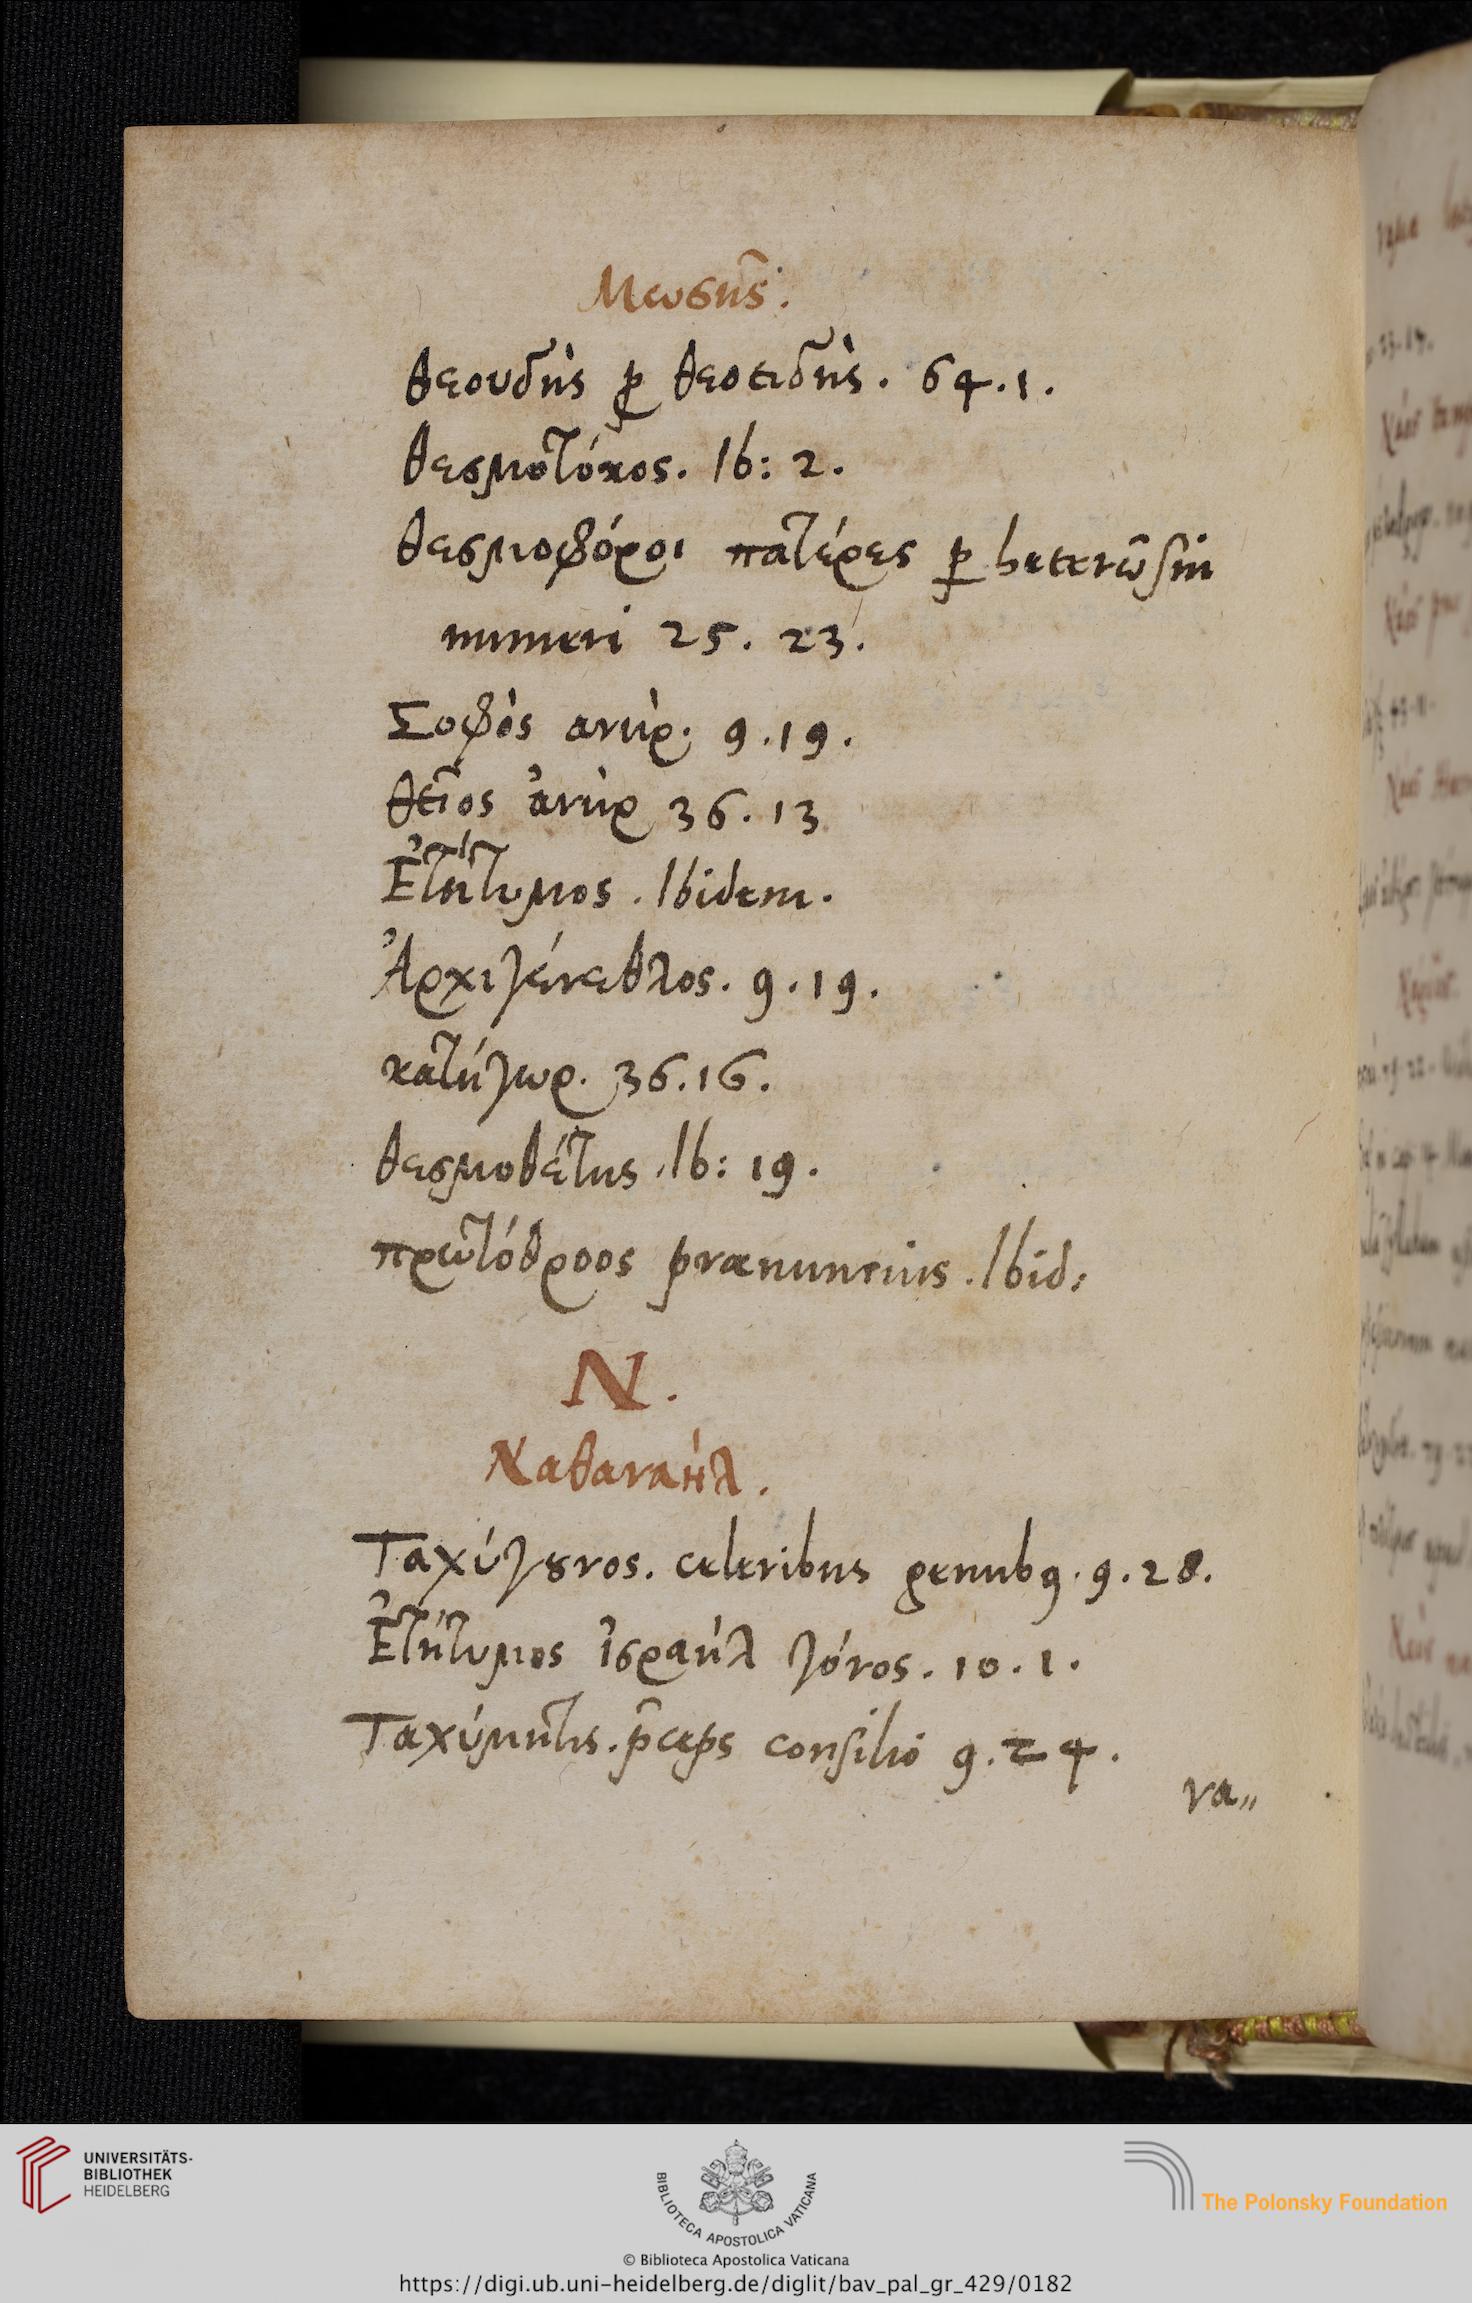 Μωσῆς.
θεουδὴς ꝑ θεοειδὴς. 64.1.
θεσμοτόκος. Ib: 2.
θεσμοφόροι πατέρες ꝑ heterōsin
numeri 25. 23.
Σοφὸς ανὴρ. 9.19.
θεῖος ἀνὴρ 36.13
Ἐτήτυμος. Ibidem.
Ἀρχιγένεθλος. 9.19.
κατήγωρ. 36.16.
θεσμοθέτης. Ib: 19.
πρωτόθροος prænuncius. Ibid:
N.
Ναθαναήλ.
Ταχύγȣνος. celeribus genubꝯ. 9.28.
Ἐτήτυμος ἰσραήλ γόνος. 10.1.
Ταχύμητις. p̄ceps consilio 9.24.
να„
UNIVERSITÄTS-
BIBLIOTHEK
HEIDELBERG
BIBLIOTECA APOSTOLICA VATICANA
The Polonsky Foundation
© Biblioteca Apostolica Vaticana
https://digi.ub.uni-heidelberg.de/diglit/bav_pal_gr_429/0182